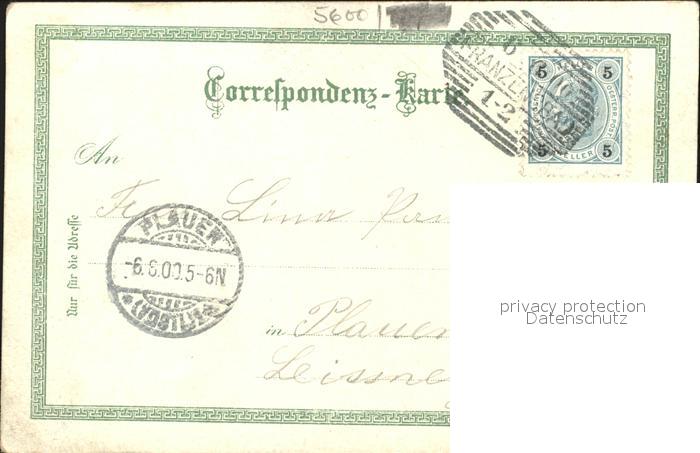 5600
Correspondenz-Karte
FRANZENSBAD
1-2
5 5
OESTERR. POST
5 HELLER 5
An
Lina
PLAUEN
-6.8.00.5-6N
(VOGTL)
Nur für die Adresse
in Plauen
privacy protection
Datenschutz